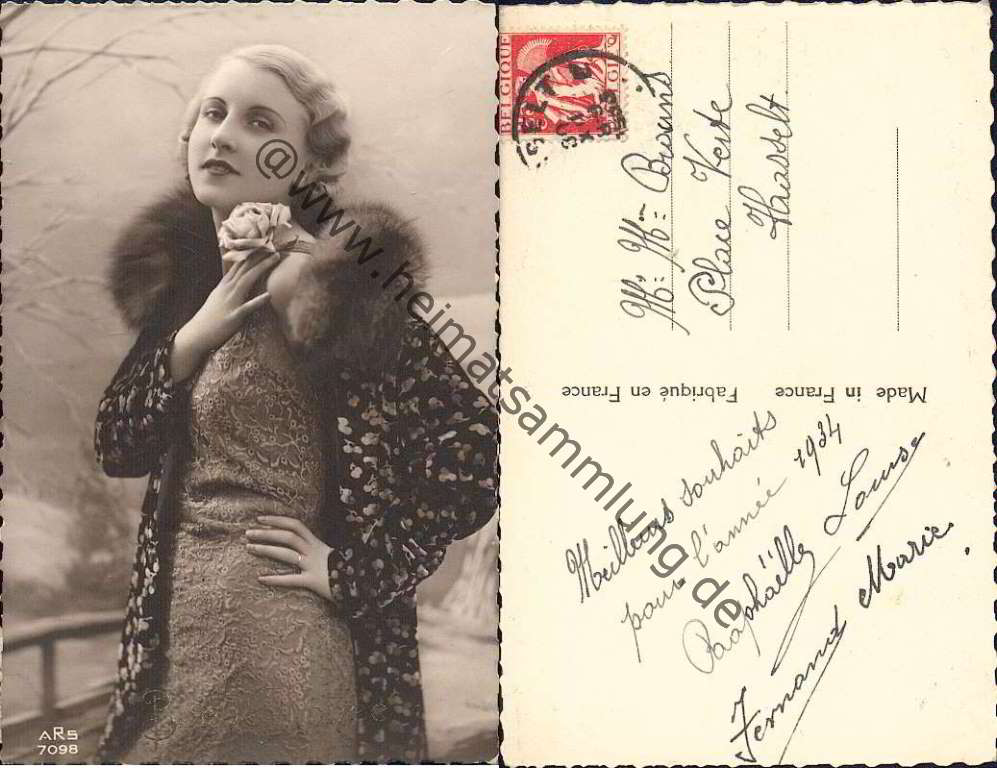 ARS
7098
@www.heimatsammlung.de
BELGIQUE
Place Verte
Hasselt
Made in France Fabriqué en France
Meilleurs souhaits
pour l'année 1934
Raaphaëlle Louise
Fernand Marie.